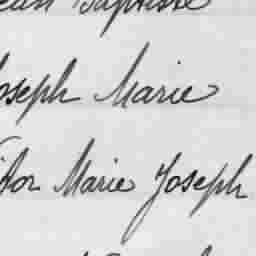 Baptiste
Joseph Marie
Victor Marie Joseph